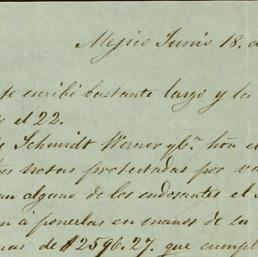 Mejico Junio 18. d
te escribi bastante largo y la
el 22.
Schmidt Werner y Ca. hoi e
notas protestadas por va
an alguno de los endosantes el
n á ponerlas en manos de su
nas de $2596.27. que cumpl